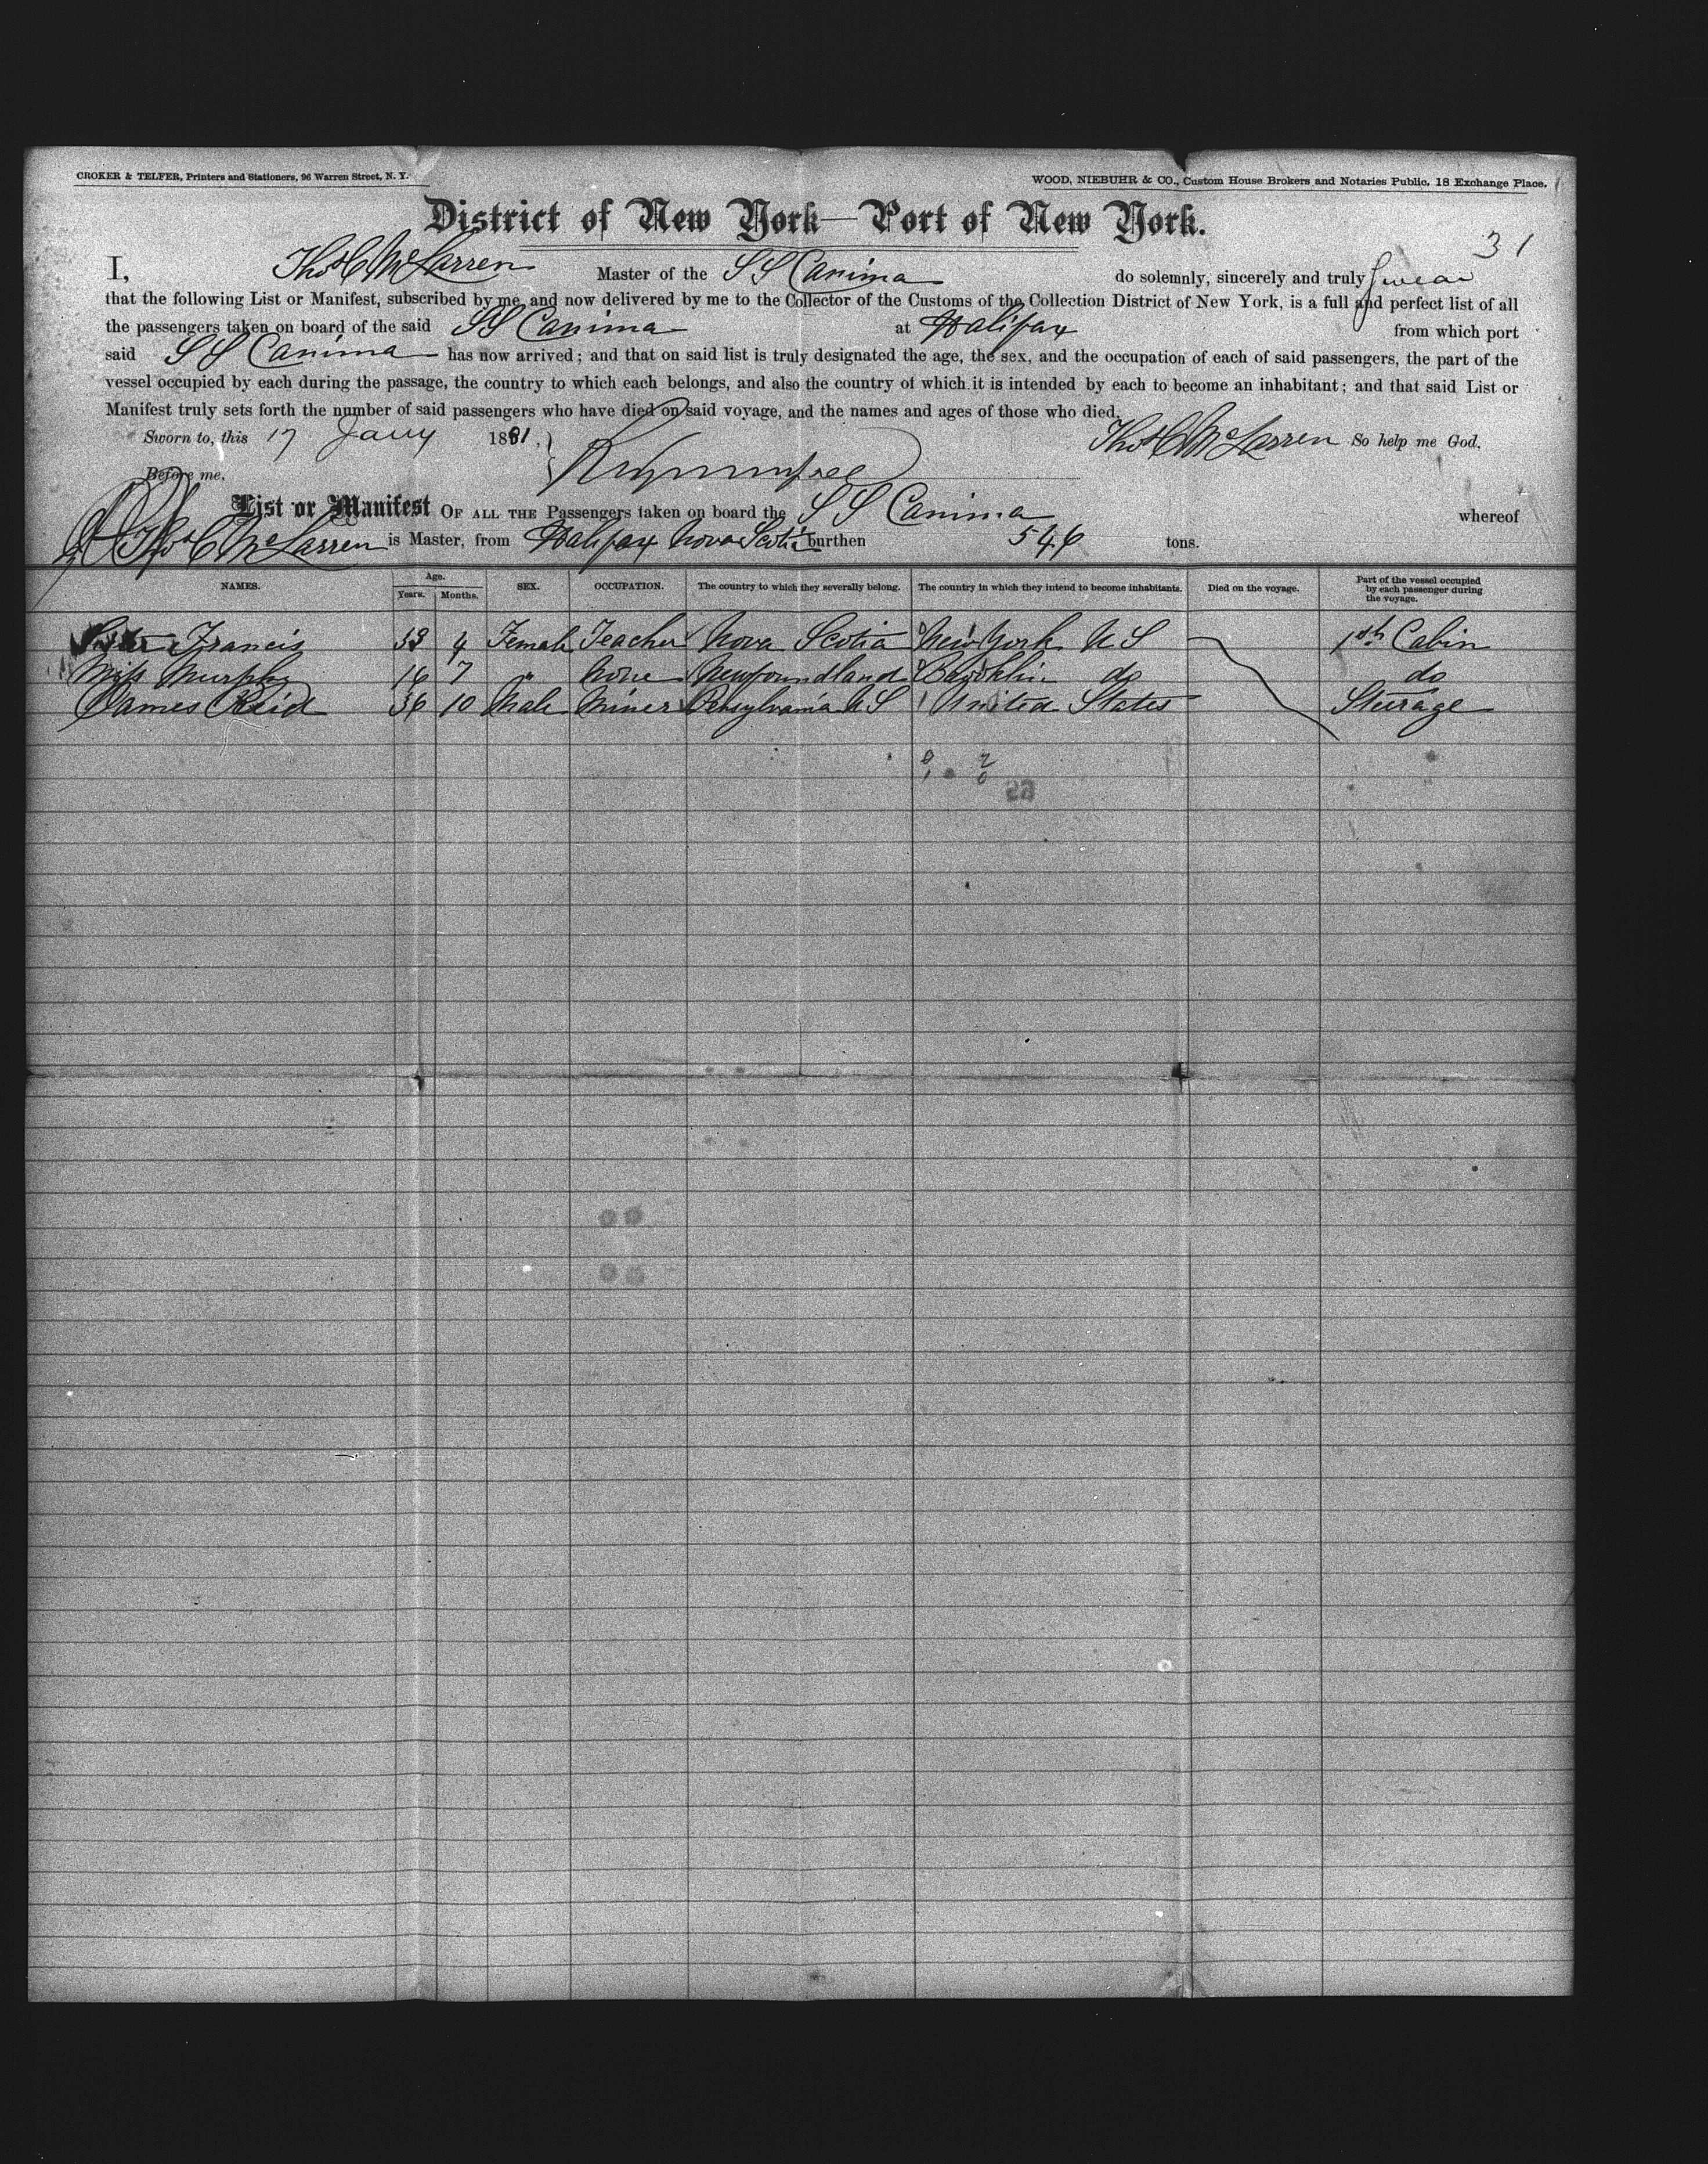 CROKER & TELFER, Printers and Stationers, 96 Warren Street, N. Y. WOOD, NIEBUHR & CO., Custom House Brokers and Notaries Public, 18 Exchange Place.
District of New York—Port of New York.
31
I, Thos C McLarren Master of the SS Canima do solemnly, sincerely and truly Swear
that the following List or Manifest, subscribed by me, and now delivered by me to the Collector of the Customs of the Collection District of New York, is a full and perfect list of all
the passengers taken on board of the said SS Canima at Halifax from which port
said SS Canima has now arrived; and that on said list is truly designated the age, the sex, and the occupation of each of said passengers, the part of the
vessel occupied by each during the passage, the country to which each belongs, and also the country of which it is intended by each to become an inhabitant; and that said List or
Manifest truly sets forth the number of said passengers who have died on said voyage, and the names and ages of those who died.
Sworn to, this 17 Jany 1881. Thos C McLarren So help me God.
Before me,
List or Manifest OF ALL THE Passengers taken on board the SS Canima whereof
Thos C McLarren is Master, from Halifax Nova Scotia burthen 546 tons.
NAMES. Age. Years. Months. SEX. OCCUPATION. The country to which they severally belong. The country in which they intend to become inhabitants. Died on the voyage. Part of the vessel occupied by each passenger during the voyage.
Sister Francis 33 4 Female Teacher Nova Scotia New York U S 1st Cabin
Miss Murphy 16 7 " None Newfoundland Brooklin do do
James Reid 36 10 Male Miner Pensylvania U S United States Steerage